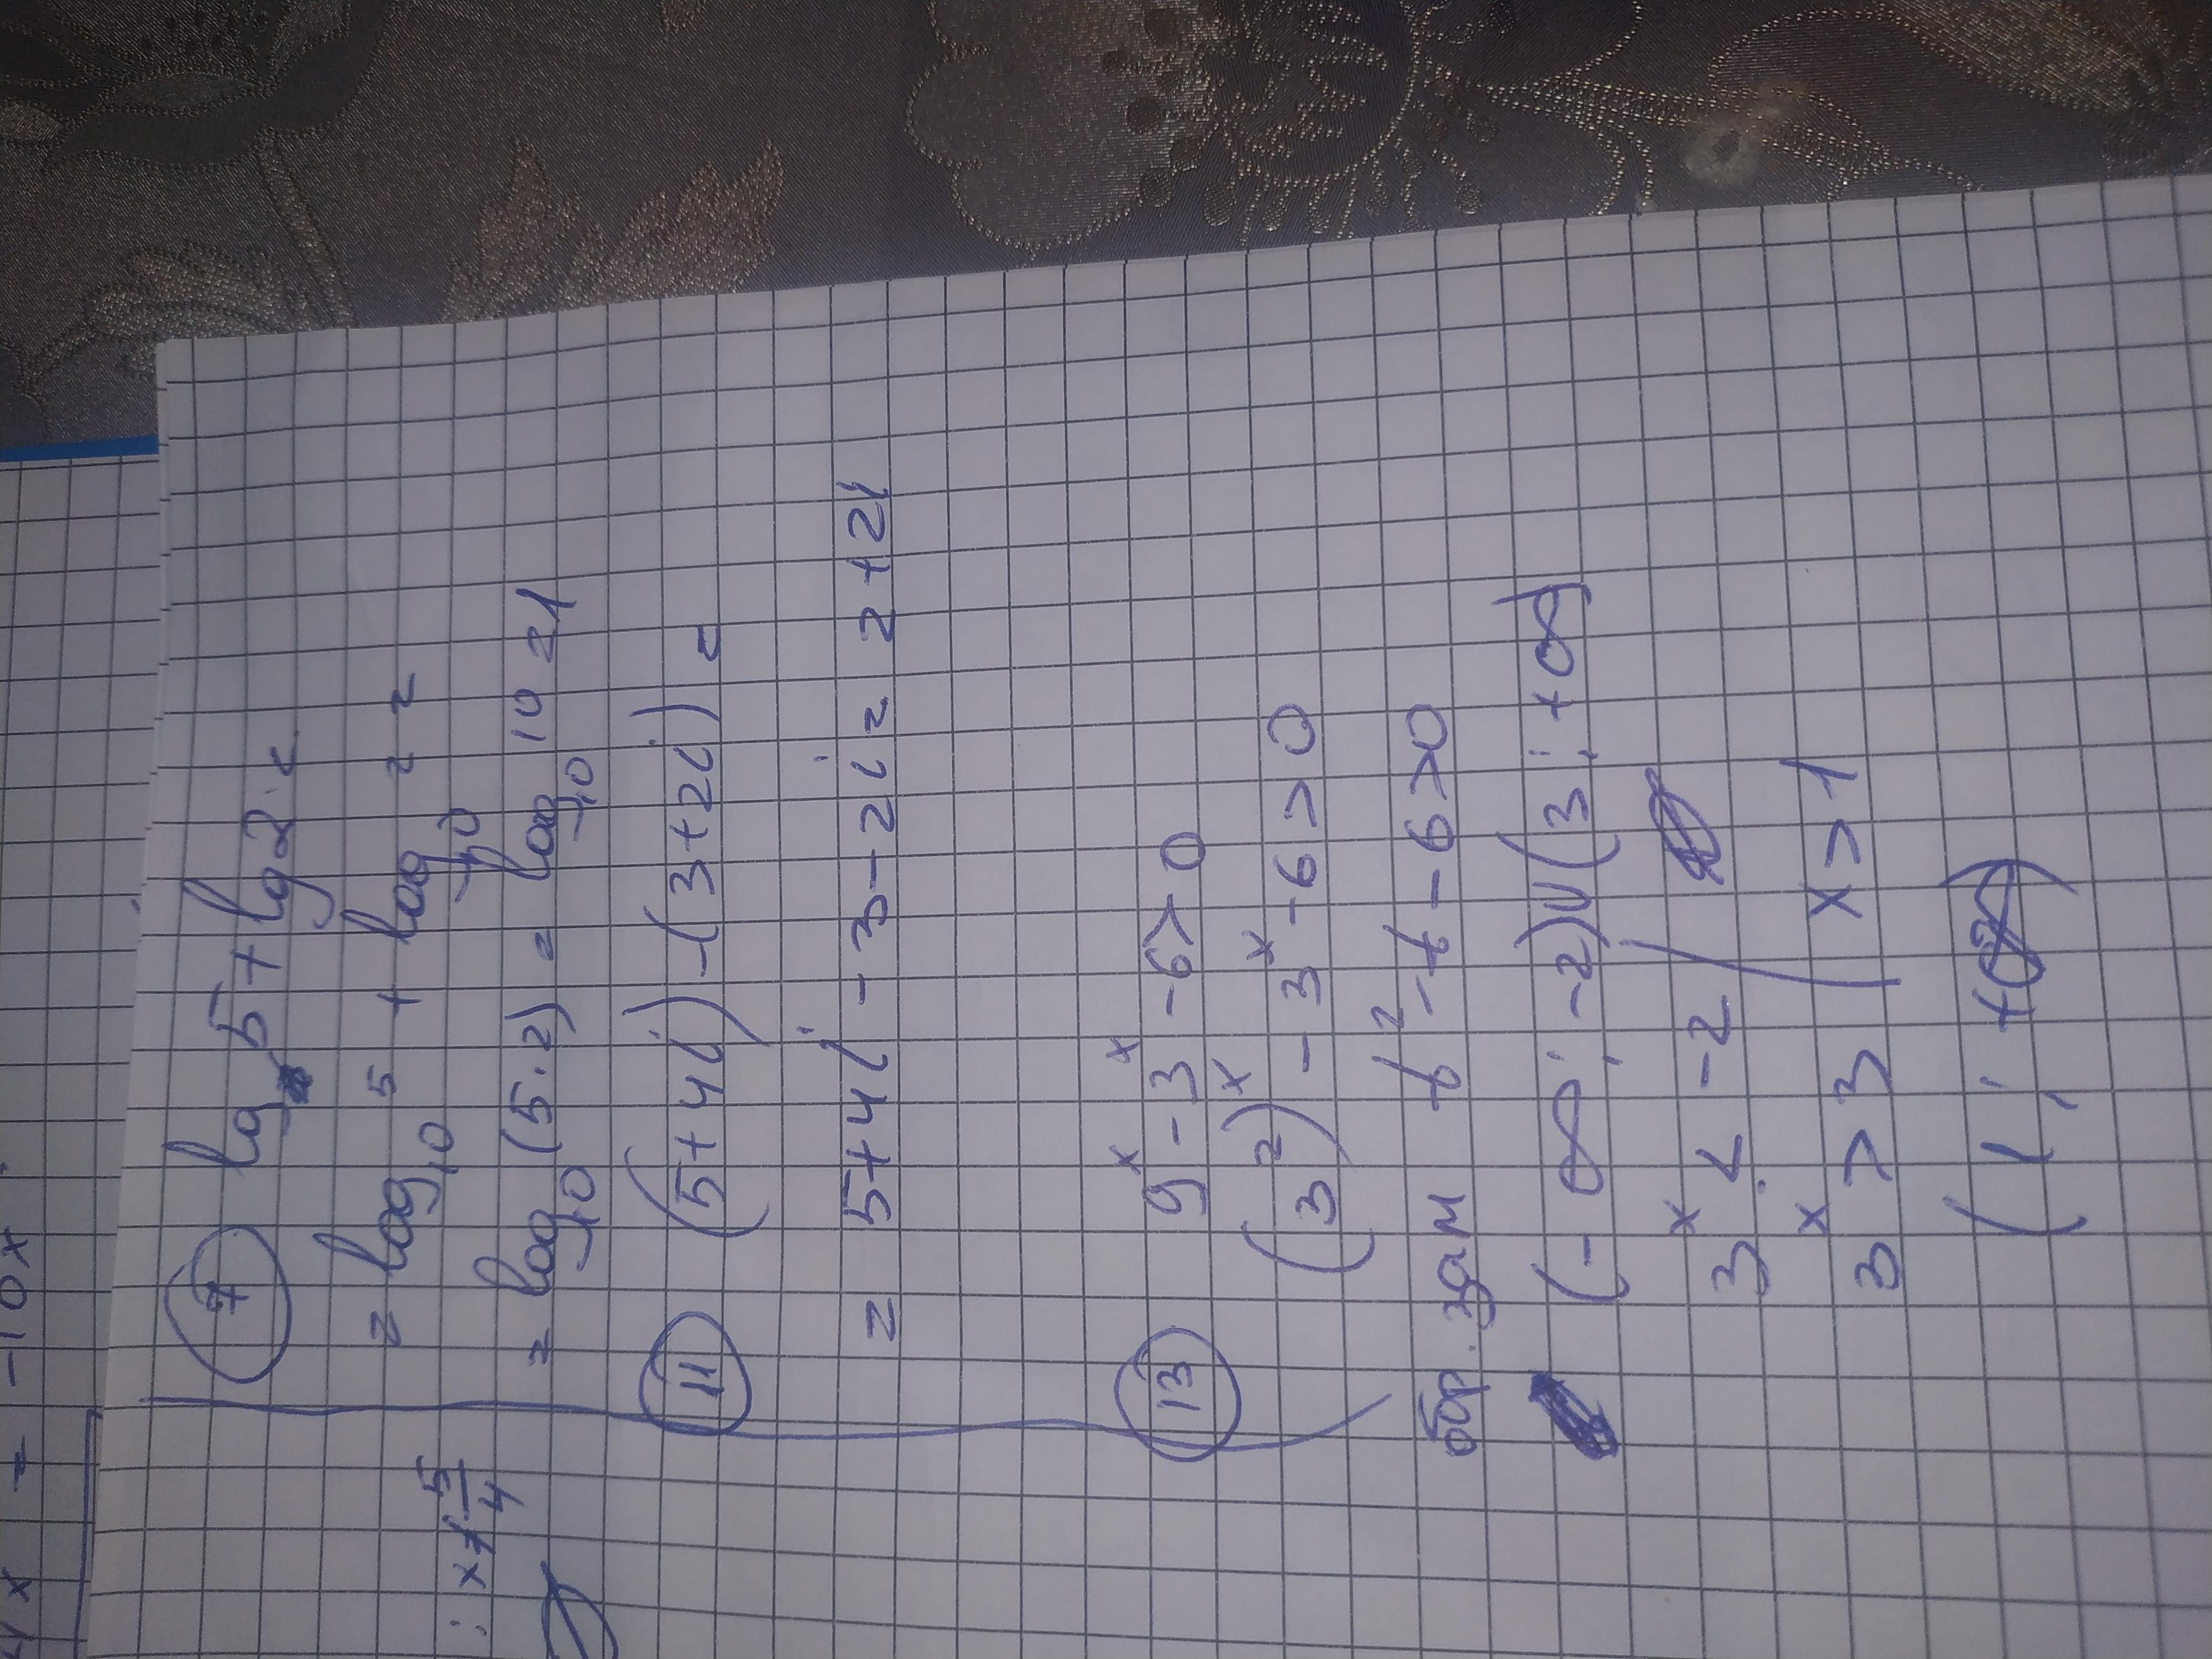 4x = -10x
: x ≠ 5/4
7 lg 5 + lg 2 =
= log₁₀ 5 + log₁₀ 2 =
= log₁₀ (5·2) = log₁₀ 10 = 1
11 (5+4i) - (3+2i) =
= 5+4i - 3 - 2i = 2 + 2i
13 9ˣ - 3ˣ - 6 > 0
(3²)ˣ - 3ˣ - 6 > 0
обр. зам t² - t - 6 > 0
(-∞; -2) ∪ (3; +∞)
3ˣ < -2 ∅
3ˣ > 3 x > 1
(1; +∞)